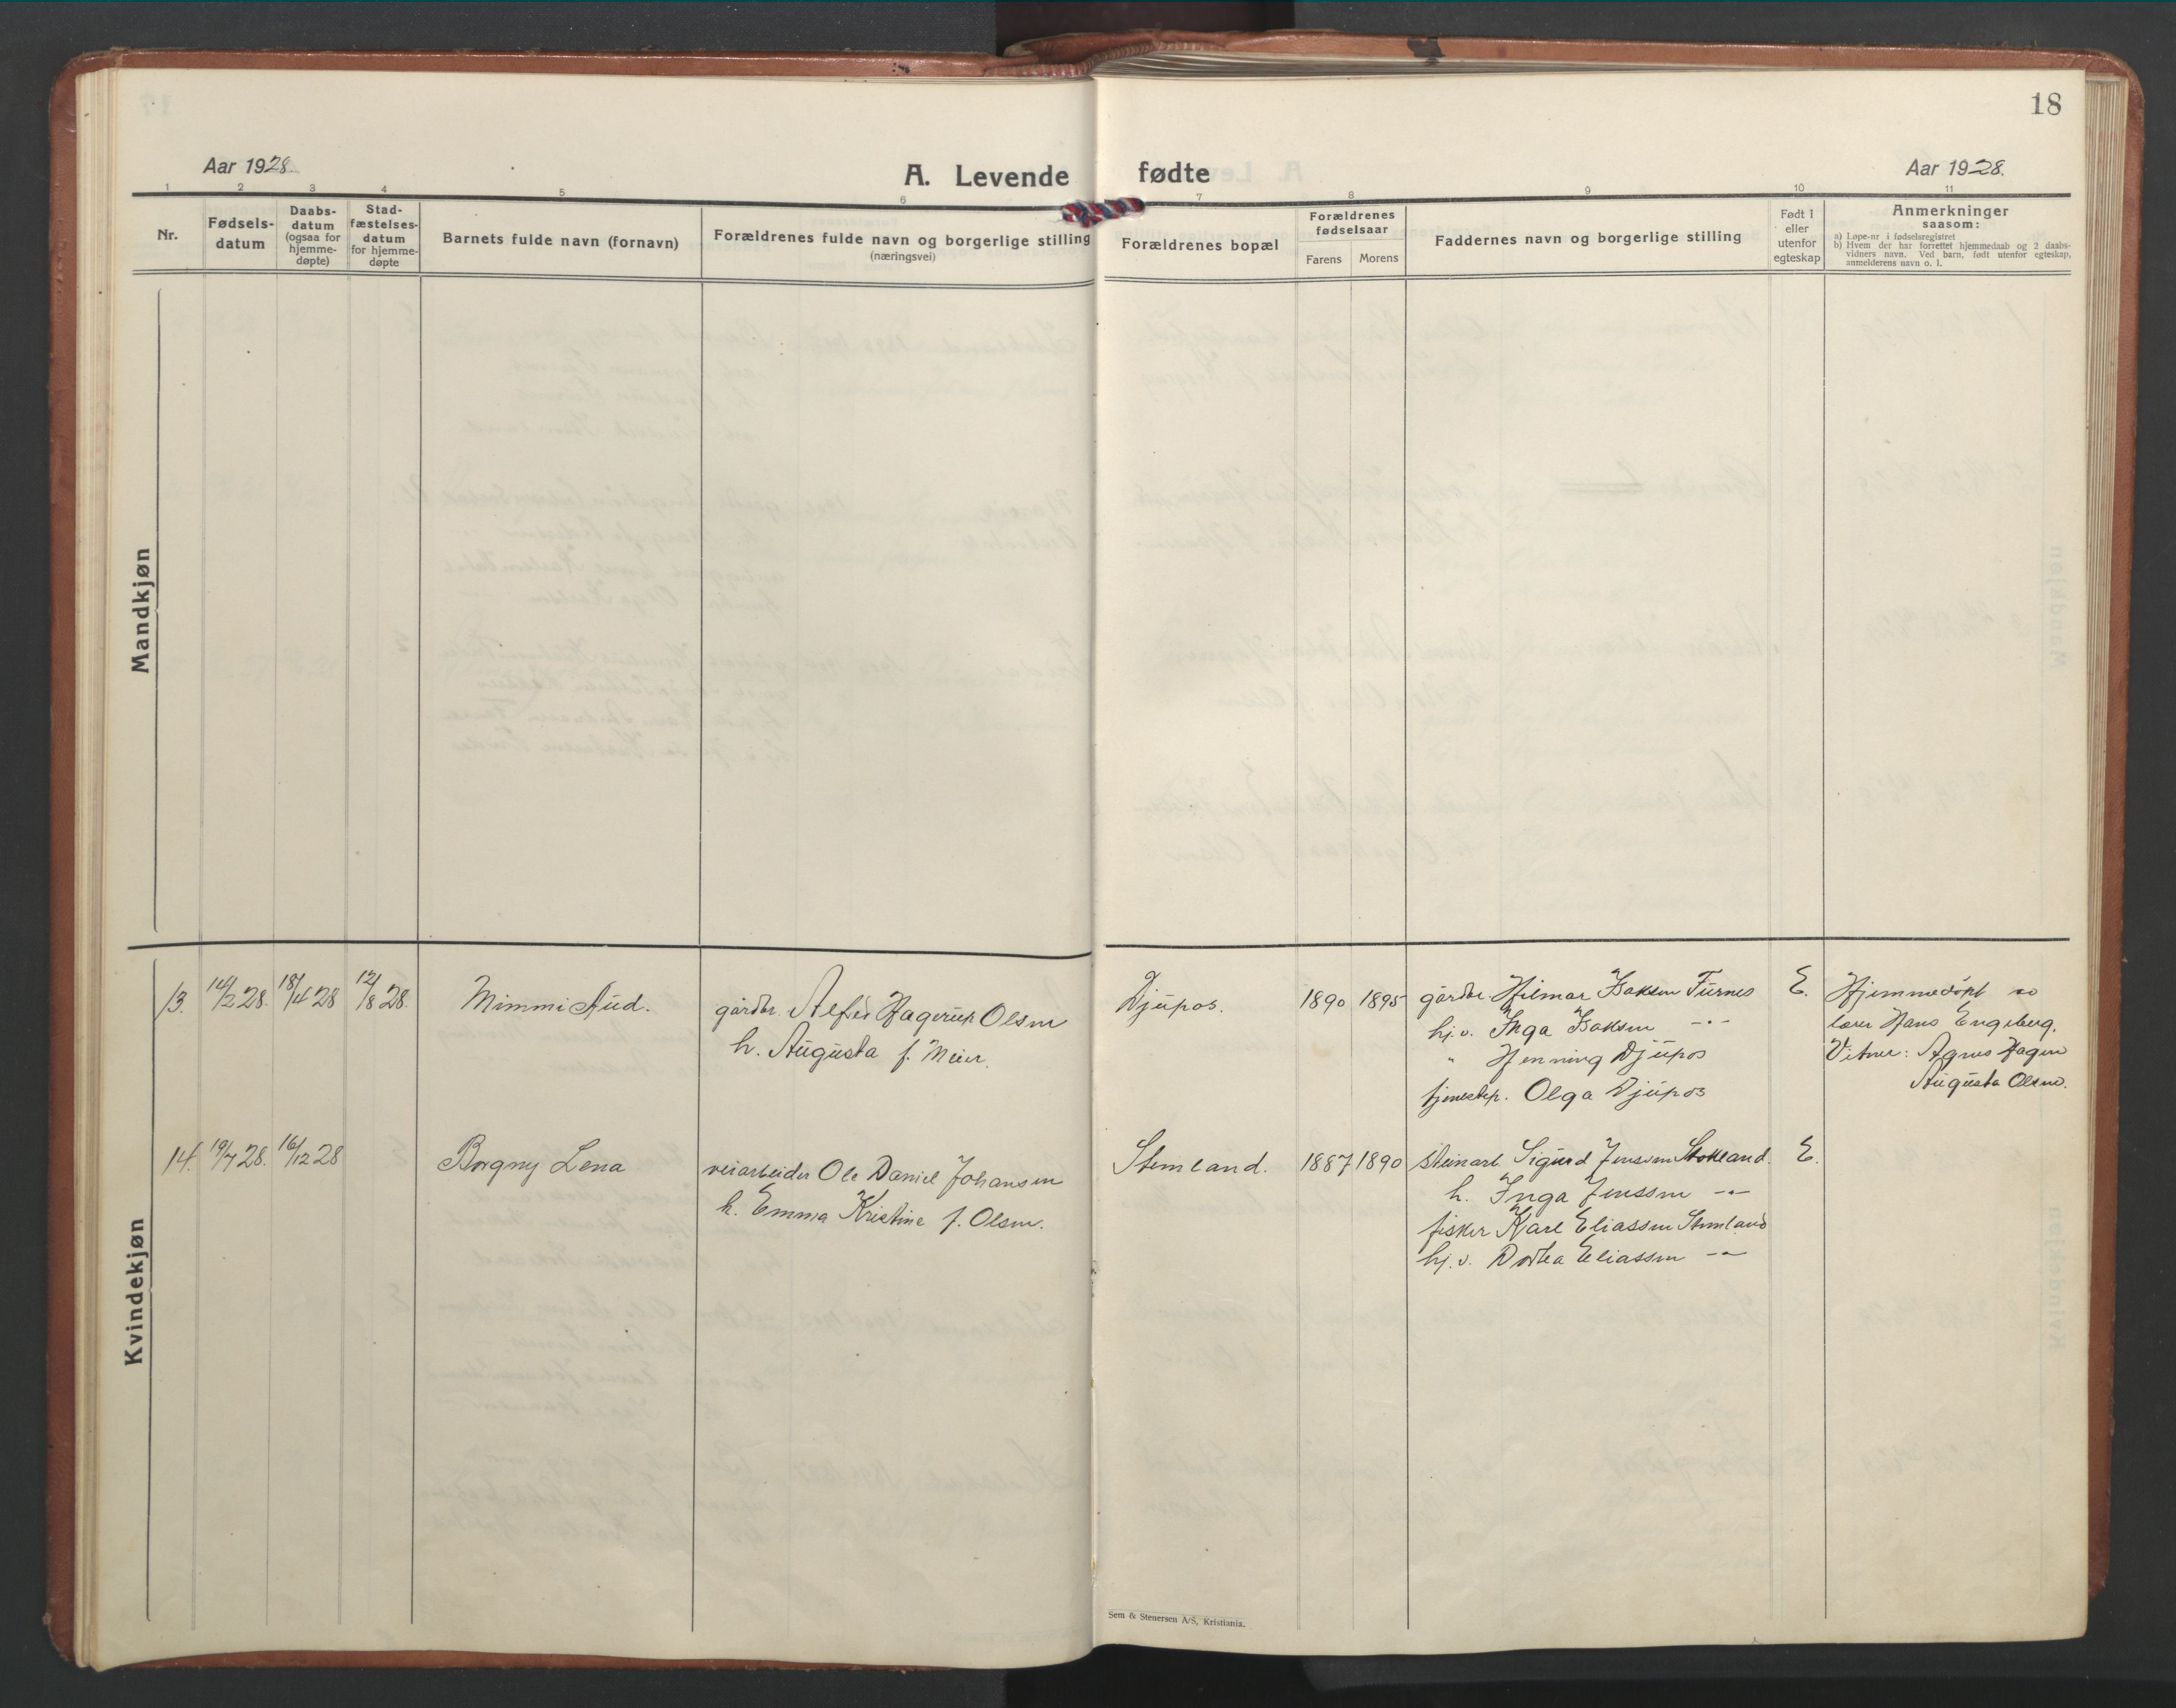 18
Aar 1928.
A. Levende fødte
Aar 1928.
1 2 3 4 5 6 7 8 9 10 11
Nr.
Fødsels-
datum
Daabs-
datum
(ogsaa for
hjemme-
døpte)
Stad-
fæstelses-
datum
for hjemme-
døpte
Barnets fulde navn (fornavn)
Forældrenes fulde navn og borgerlige stilling
(næringsvei)
Forældrenes bopæl
Forældrenes
fødselsaar
Farens Morens
Faddernes navn og borgerlige stilling
Født i
eller
utenfor
egteskap
Anmerkninger
saasom:
a) Løpe-nr i fødselsregistret
b) Hvem der har forrettet hjemmedaab og 2 daabs-
vidners navn. Ved barn, født utenfor egteskap,
anmelderens navn o. l.
Mandkjøn
Kvindekjøn
13. 14/2 28. 18/4 28 12/8 28.
Mimmi Aud.
gårdbr. Alfed Hagerup Olsen
h. Augusta f. Meier.
Djupos.
1890 1895
gårdbr. Hilmar Isaksen Furnes
hj.v. Inga Isaksen -"-
" Henning Djupos
tjenestep. Olga Djupos
E.
Hjemmedöpt av
lærer Hans Engeberg.
Vitner: Agnes Hagen
Augusta Olsen.
14. 19/7 28. 16/12 28
Borgny Lena
veiarbeider Ole Daniel Johansen
h. Emma Kristine f. Olsen.
Stemland.
1887 1890
steinarb. Sigurd Jenssen Stokland.
h. Inga Jenssen -"-
fisker Karl Eliassen Stemland
hj.v. Dortea Eliassen -"-
E.
Sem & Stenersen A/S, Kristiania.